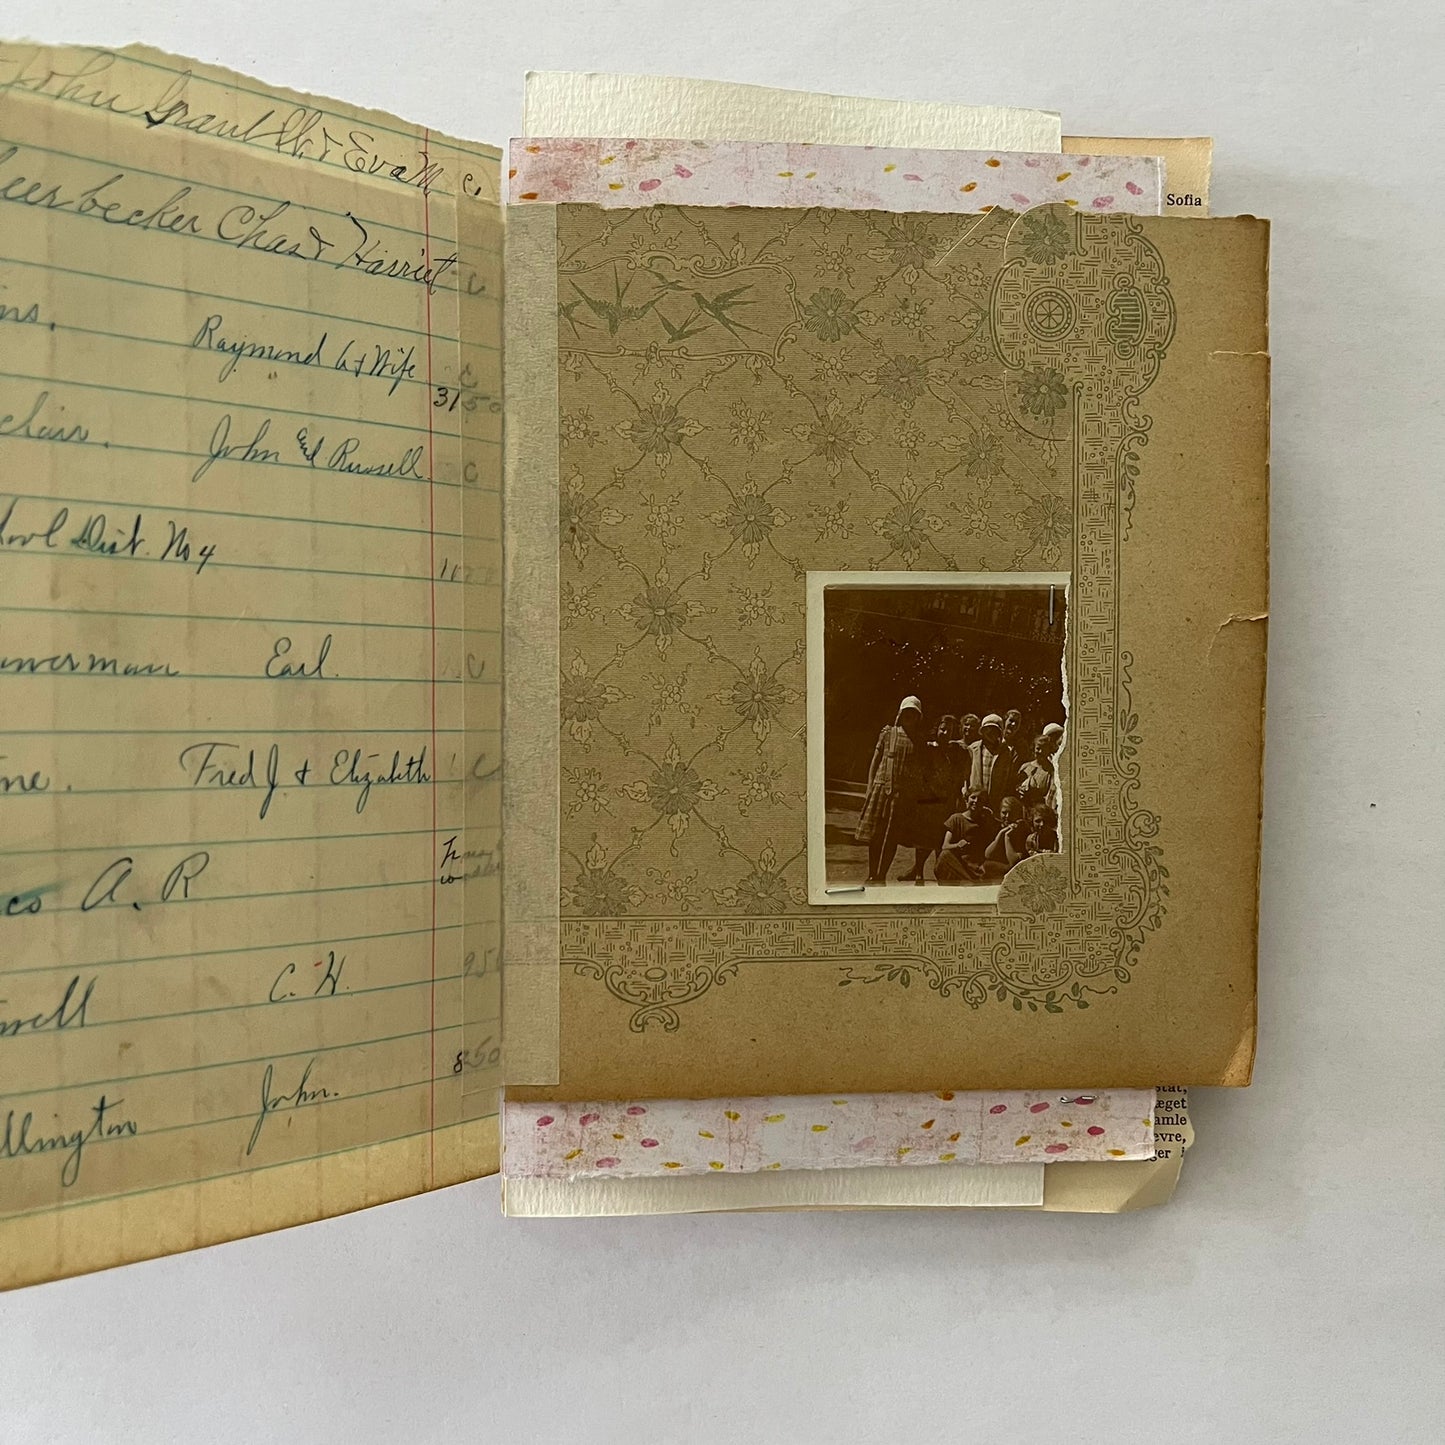 John Grant Sh. & Eva M. C.
eerbecker Chas & Harriet C
ns. Raymond A & Wife C
31 50
clair. John and Russell. C
ool Dist. No 4
11
werman Earl. C
ne. Fred J. & Elizabeth C
co A. R
well C. H. 950
llington John. 850
Sofia
stat,
æget
amle
evre,
ger i